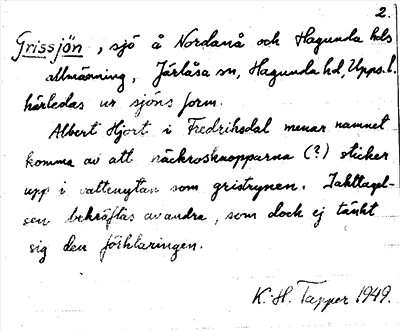 2.
Grissjön, sjö å Nordanå och Hagunda hds
allmänning, Järlåsa sn, Hagunda hd, Upps. l.
härledas ur sjöns form.
Albert Hjort i Fredriksdal menar namnet
komma av att näckrosknopparna (?) sticker
upp i vattenytan som gristrynen. Iakttagel-
sen bekräftas av andra, som dock ej tänkt
sig den förklaringen.
K. H. Tapper 1949.